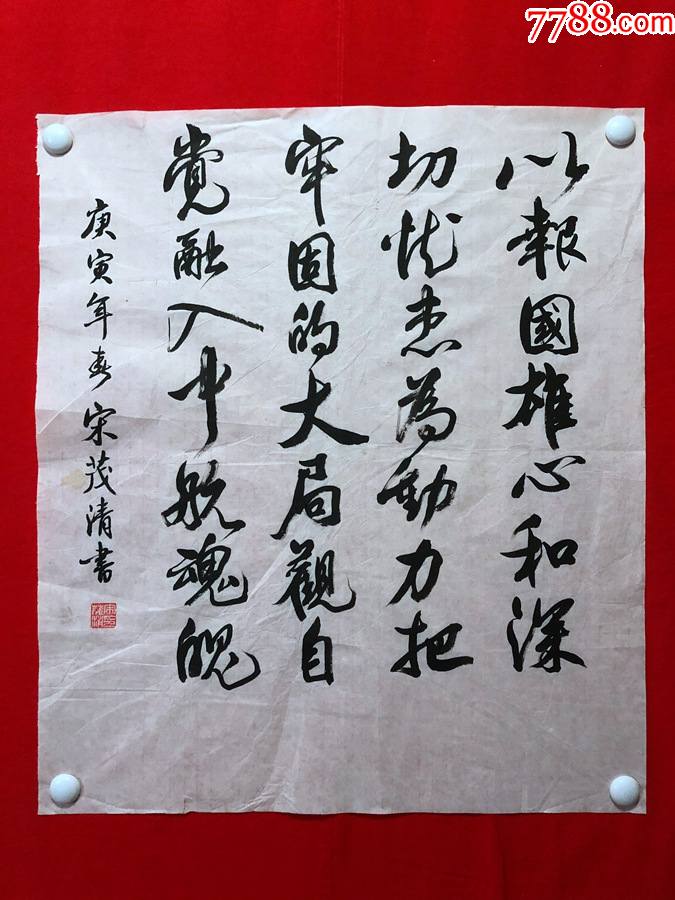 7788.com
以報國雄心和深
切忧患為動力把
牢固的大局觀自
覺融入中航魂魄
庚寅年春宋茂清書